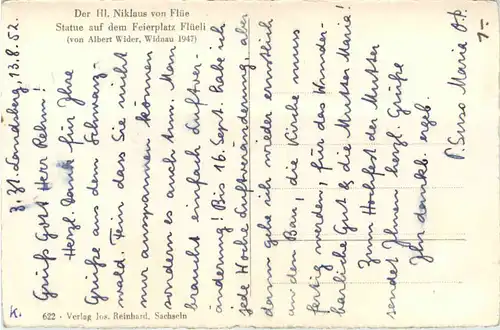 Der Hl. Niklaus von Flüe
Statue auf dem Feierplatz Flüeli
(von Albert Wider, Widnau 1947)
z. Zt. Landsberg, 13.8.52.
Grüß Gott Herr Rehm!
Herzl. Dank für Ihre
Grüße aus dem Schwarz-
wald. Fein dass Sie nicht
nur ausspannen können
sondern es auch tun. Man
braucht einfach Luftver-
änderung! Bis 16. Sept. habe ich
jede Woche Luftveränderung, aber
dann gehe ich wieder ernstlich
an den Bau, die Kirche muss
fertig werden, für das Wunder-
barliche Gut & die Mutter Maria!
Zum Hochfest der Mutter
sendet Ihnen herzl. Grüße
Ihr dankb. ergb.
P. Suso Maria O.P.
1-
K.
622 - Verlag Jos. Reinhard, Sachseln